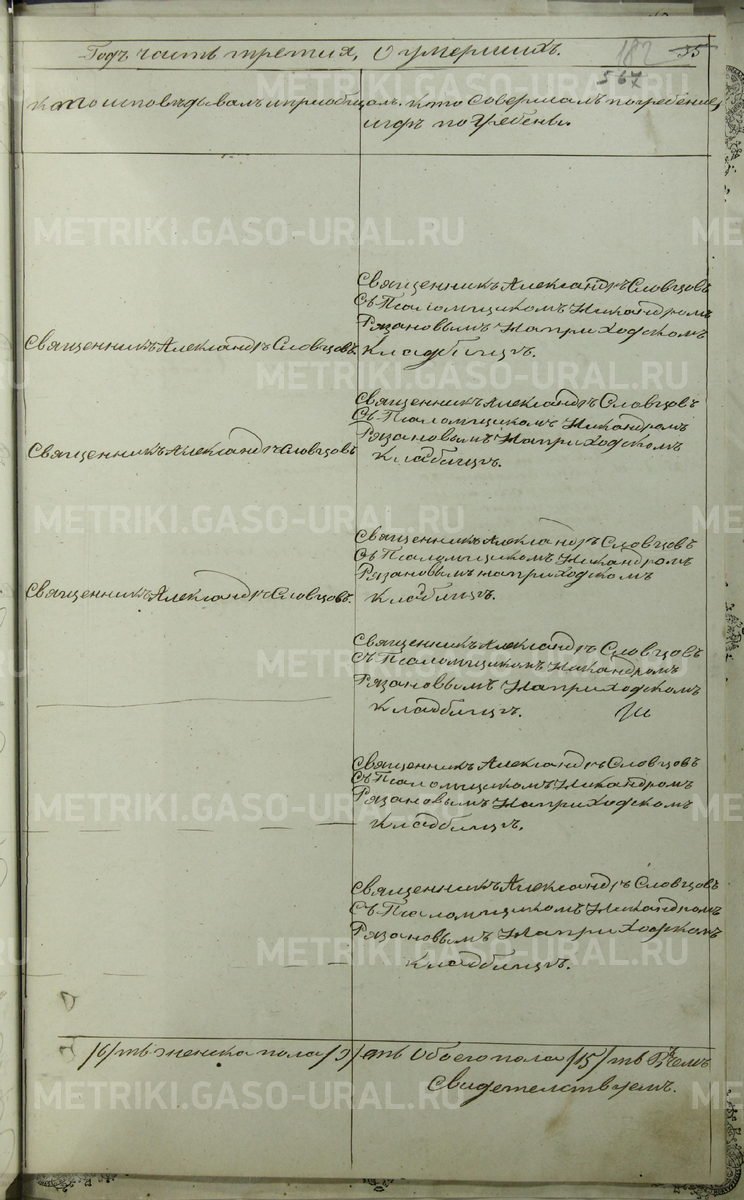 Годъ часть третия, О умершихъ.
182
55
567
кто исповѣдывалъ и приобщалъ.
кто совершалъ погребение,
и гдѣ погребены.
Священникъ Александръ Словцовъ.
Священникъ Александръ Словцовъ
Съ Псаломщикомъ Никандромъ
Рязановымъ На приходскомъ
кладбищѣ.
Священникъ Александръ Словцовъ
Священникъ Александръ Словцовъ
Съ Псаломщикомъ Никандромъ
Рязановымъ На приходскомъ
кладбищѣ.
Священникъ Александръ Словцовъ.
Священникъ Александръ Словцовъ
Съ Псаломщикомъ Никандромъ
Рязановымъ на приходскомъ
кладбищѣ.
Священникъ Александръ Словцовъ
Съ Псаломщикомъ Никандромъ
Рязановымъ На приходскомъ
кладбищѣ.
Священникъ Александръ Словцовъ
Съ Псаломщикомъ Никандромъ
Рязановымъ На приходскомъ
кладбищѣ.
Священникъ Александръ Словцовъ
Съ Псаломщикомъ Никандромъ
Рязановымъ На приходскомъ
кладбищѣ.
/6/ть женска пола /9/ать Обоего пола /15/ть Въ чемъ
Свидетелствуемъ.
METRIKI.GASO-URAL.RU